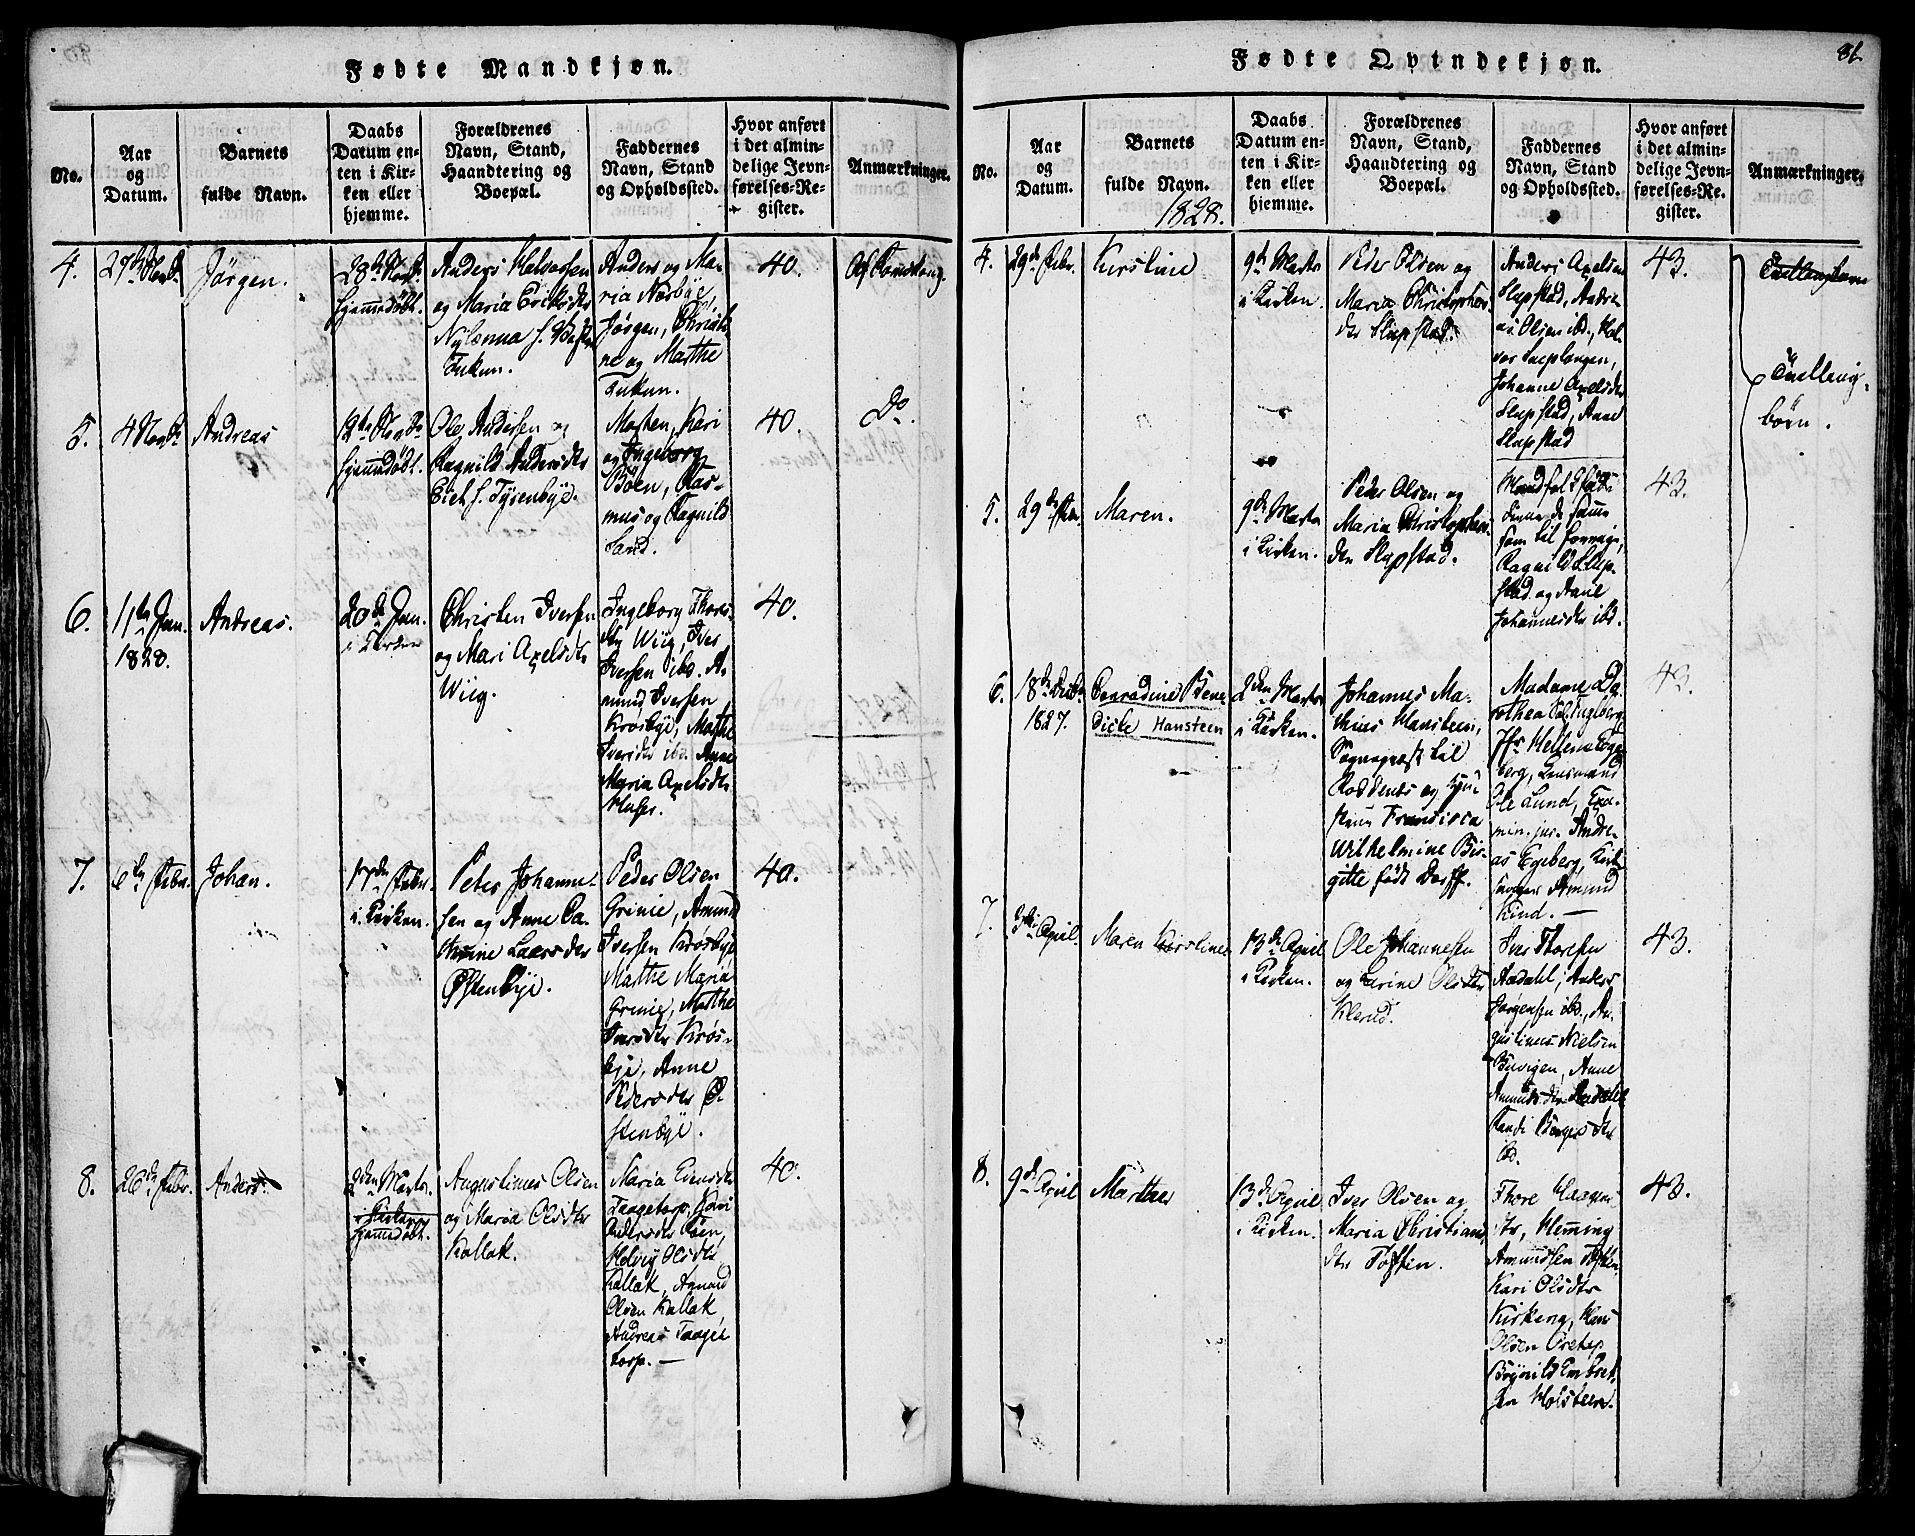 Fødte Mandkjøn.
No.
Aar
og
Datum.
Barnets
fulde Navn.
Daabs
Datum en-
ten i Kir-
ken eller
hjemme.
Forældrenes
Navn, Stand,
Haandtering og
Boepæl.
Faddernes
Navn, Stand
og Opholdssted.
Hvor anført
i det almin-
delige Jevn-
førelses-Re-
gister.
Anmærkninger.
4.
Jørgen.
hjemmedøbt.
Anders Halvorsen
og Maria
Anders og Ma-
ria Næsbye,
Jørgen, Christi
ne og Marthe
40.
5.
4
Andreas
hjemmedøbt.
Ole Andersen og
Ragnild Andersdtr
Morten, Kari
og Ingeborg
Böen, Ras-
mus og Ragnild
Sand.
40.
Do.
6.
11te Jan.
1828.
Andreas.
20de Jan.
i Kirken
Christen Iversen
og Mari Axelsdtr
Wiig.
Ingeborg
Wiig, Iver
Iversen ibd. A-
mund Iversen
Krosbye, Marthe
Iversdtr ibd. Anne
Maria Axelsdtr
40.
7.
6te Febr.
Johan.
17den Febr.
i Kirken.
Peter Johanne-
sen og Anne Ca-
thrine Larsdtr
Østenbye.
Peder Olsen
Grinie, Amund
Iversen Krosbye
Marthe Maria
Grinie, Marthe
Iversdtr Krös-
bye, Anne
Pedersdtr Ø-
stenbye.
40.
8.
26de Febr.
Anders
2den Marts.
i Kirken
hjemmedøbt.
Augustinus Olsen
og Maria Olsdtr
Kallak.
Maria
Taagetorp, Kari
Helvig Olsdtr
Kallak, Amund
Olsen Kallak
Andreas Taage
torp. —
40.
Fødte Qvindekjøn.
81
No.
Aar
og
Datum.
Barnets
fulde Navn.
1828.
Daabs
Datum en-
ten i Kir-
ken eller
hjemme.
Forældrenes
Navn, Stand,
Haandtering og
Boepæl.
Faddernes
Navn, Stand
og Opholdssted.
Hvor anført
i det almin-
delige Jevn-
førelses-Re-
gister.
Anmærkninger.
4.
29de Febr.
Kirstine
9de Marts
i Kirken.
Peder Olsen og
Maria Christopher
dtr Slupstad.
Anders Axelsen
Slupstad, Andre
as Olsen ibd., Hal-
vor
Johanne Axelsdtr
Slupstad, Anne
Slupstad
43.
Tvellingbørn
Tvelling-
børn.
5.
29de Febr.
Maren.
9de Marts
i Kirken.
Peder Olsen og
Maria Christophers
dtr Slupstad.
som til forrige,
Ragnild Slup-
stad og Anne
Johannesdtr ibd.
43.
6.
18de
1827.
Conradine Bene
dicte Hansteen
2den Marts
i Kirken.
Johannes Ma-
thias Hansteen,
Sognepræst til
Roddenes og Hu-
strue Francisca
Wilhelmine Bir-
gitte født Dorff.
Madame Do-
rothea
berg, Lensmand
Ole Lund, Exa-
min. jur. Andre-
as Egeberg, Kirke
Amund
Kind. —
43.
7.
April.
Maren Kirstine
13de April
i Kirken.
Ole Johannesen
og Karine Olsdtr
Klerud.
Iver Thoresen
Aadahl, Anders
Jørgensen ibd., Au-
gustinus Nielsen
Buvigen, Anne
Amundsdtr Aadahl
Randi
ibd.
43.
8.
9de April
Marthe
13de April
i Kirken.
Iver Olsen og
Maria Christians
dtr Toften.
Thore Haagen
str, Hemming
Amundsen Toften,
Kari Olsdtr
Kirkeng, Hans
Olsen
Holsteen.
43.